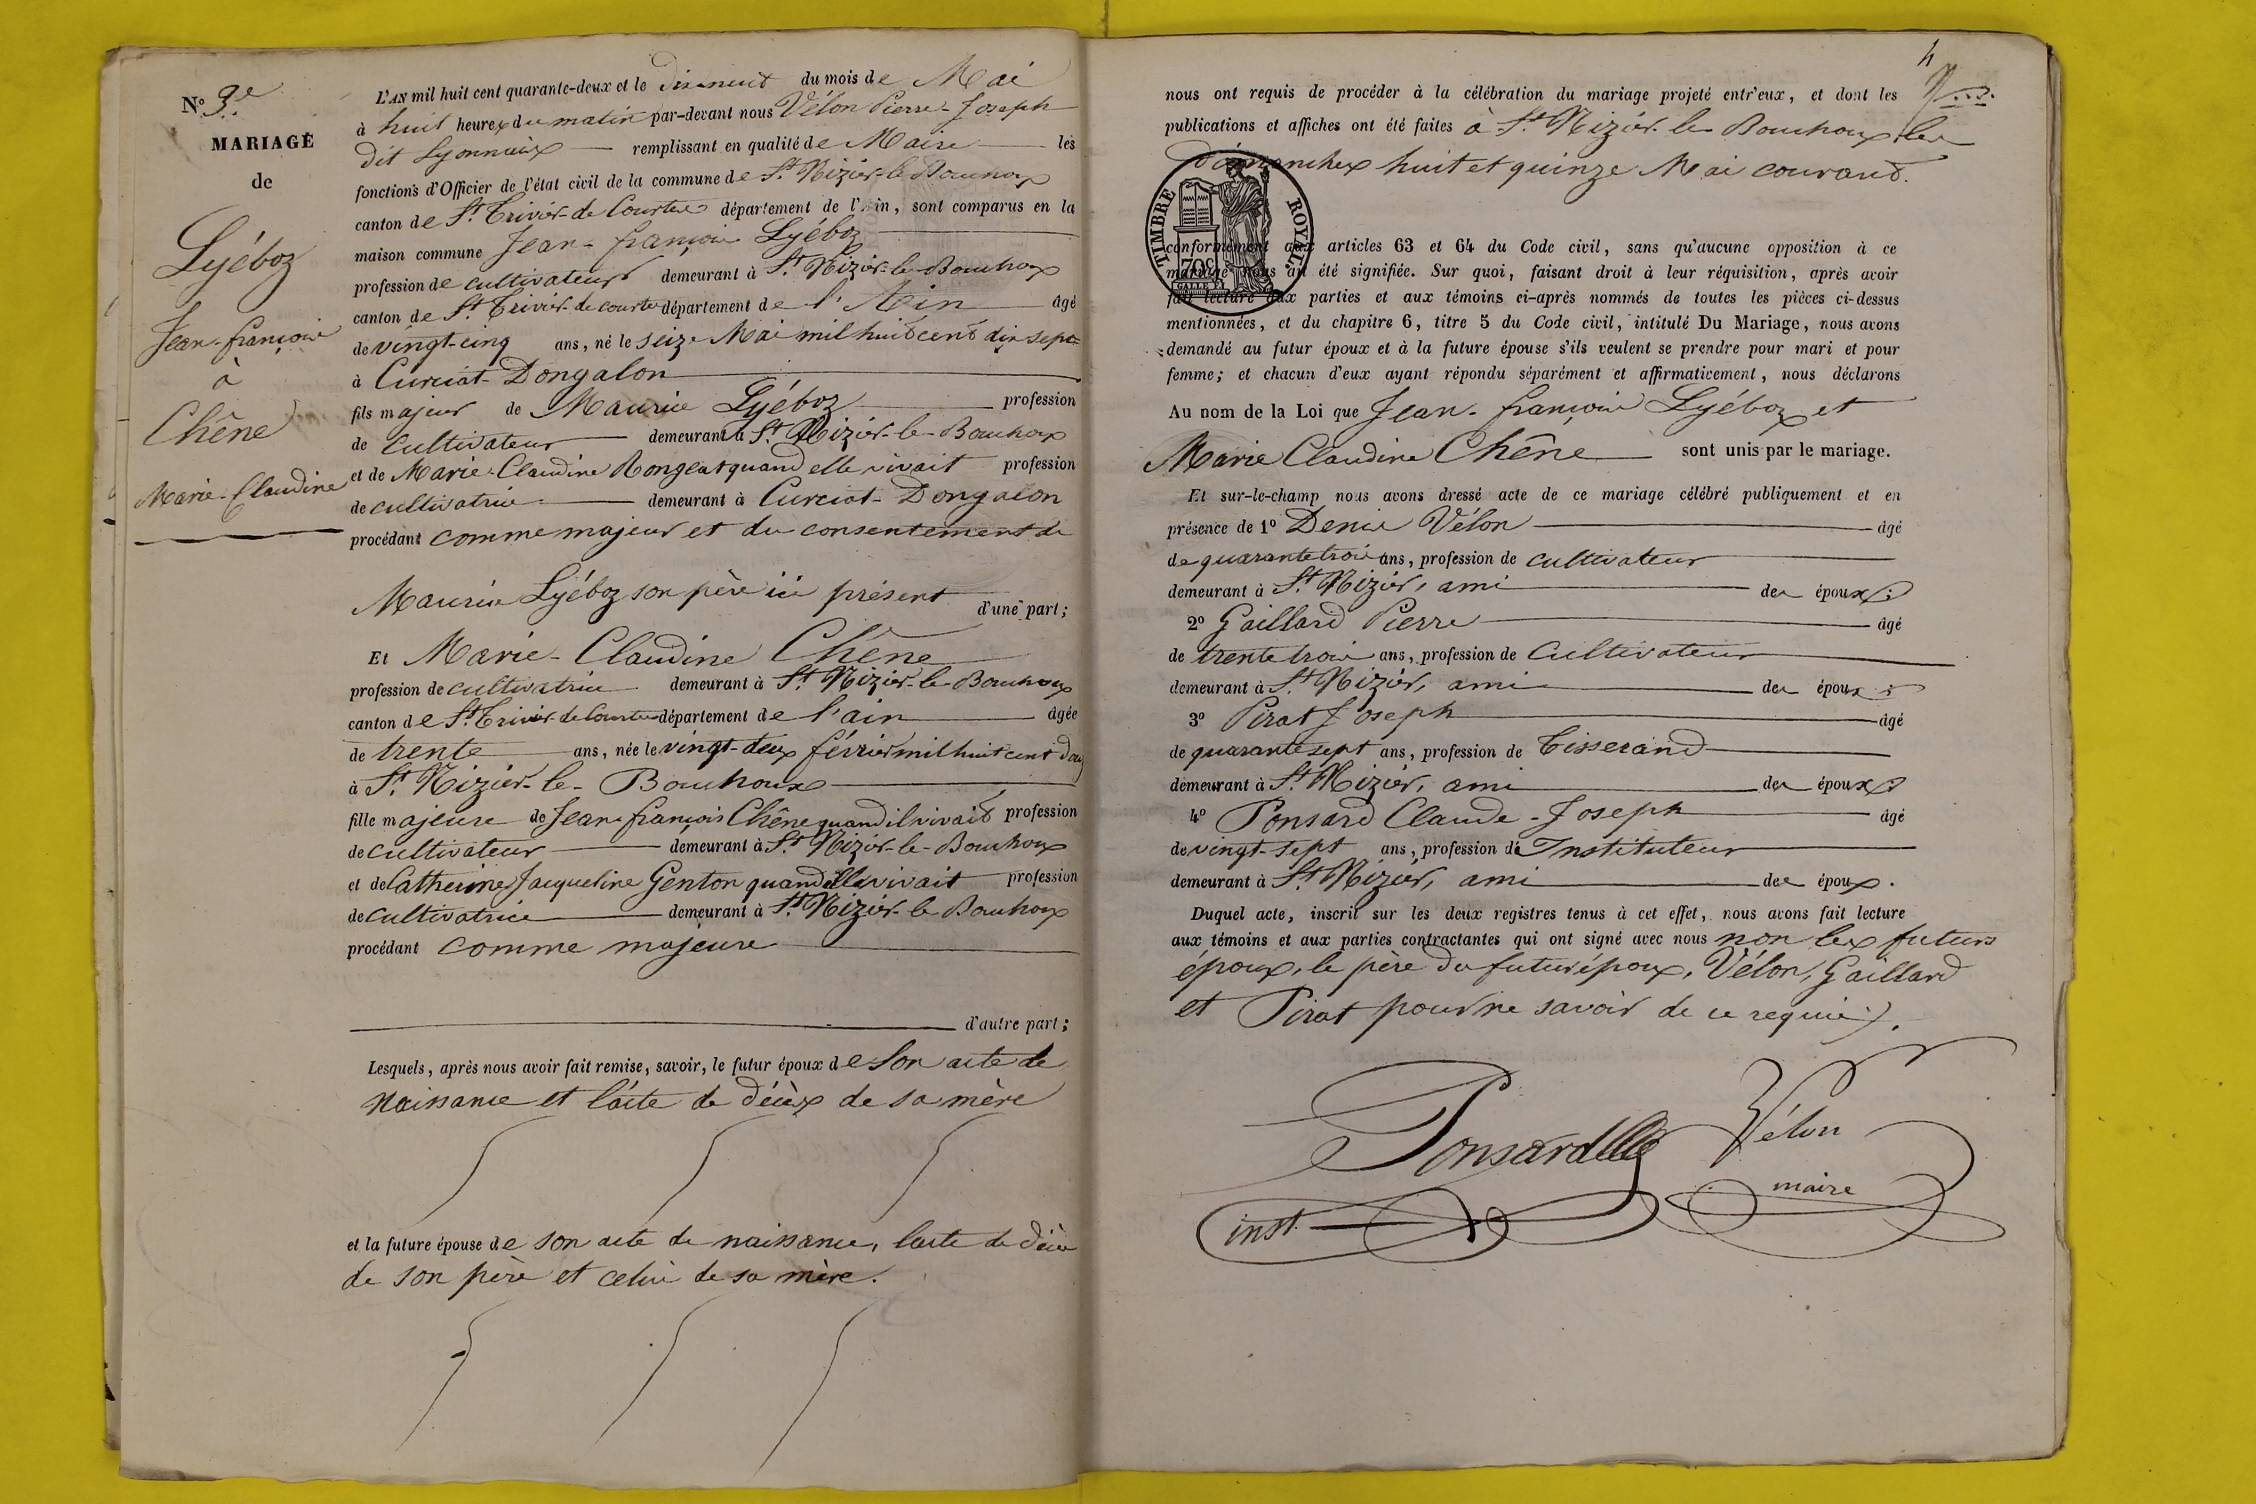 N.o 3.e
MARIAGE
de
Lyéboz
Jean-françois
à
Chêne
Marie-Claudine
L'AN mil huit cent quarante-deux et le dix-huit du mois de Mai
à huit heures du matin par-devant nous Vélon Pierre-Joseph
dit Lyonnais remplissant en qualité de Maire les
fonctions d'Officier de l'état civil de la commune de St. Nizier-le-Bouchoux
canton de St. Trivier-de-Courtes département de l'Ain, sont comparus en la
maison commune Jean-françois Lyéboz
profession de cultivateur demeurant à St. Nizier-le-Bouchoux
canton de St. Trivier-de-courtes département de l'Ain âgé
de vingt-cinq ans, né le seize Mai mil huit cent dix sept
à Curciat-Dongalon
fils majeur de Maurice Lyéboz profession
de cultivateur demeurant à St. Nizier-le-Bouchoux
et de Marie-Claudine Rongeat quand elle vivait profession
de cultivatrice demeurant à Curciat-Dongalon
procédant comme majeur et du consentement de
Maurice Lyéboz son père ici présent
d'une part;
Et Marie-Claudine Chêne
profession de cultivatrice demeurant à St. Nizier-le-Bouchoux
canton de St. Trivier-de-Courtes département de l'ain âgée
de trente ans, née le vingt-deux février mil huit cent douze
à St. Nizier-le-Bouchoux
fille majeure de Jean-françois Chêne quand il vivait profession
de cultivateur demeurant à St. Nizier-le-Bouchoux
et de Catherine Jacqueline Genton quand elle vivait profession
de cultivatrice demeurant à St. Nizier-le-Bouchoux
procédant comme majeure
d'autre part;
Lesquels, après nous avoir fait remise, savoir, le futur époux de son acte de
naissance et l'acte de décès de sa mère
et la future épouse de son acte de naissance, l'acte de décès
de son père et celui de sa mère.
4
nous ont requis de procéder à la célébration du mariage projeté entr'eux, et dont les
publications et affiches ont été faites à St. Nizier-le-Bouchoux les
dimanches huit et quinze Mai courant.
TIMBRE ROYAL
70c
conformément aux articles 63 et 64 du Code civil, sans qu'aucune opposition à ce
mariage nous ait été signifiée. Sur quoi, faisant droit à leur réquisition, après avoir
fait lecture aux parties et aux témoins ci-après nommés de toutes les pièces ci-dessus
mentionnées, et du chapitre 6, titre 5 du Code civil, intitulé Du Mariage, nous avons
demandé au futur époux et à la future épouse s'ils veulent se prendre pour mari et pour
femme; et chacun d'eux ayant répondu séparément et affirmativement, nous déclarons
Au nom de la Loi que Jean-françois Lyéboz et
Marie Claudine Chêne sont unis par le mariage.
Et sur-le-champ nous avons dressé acte de ce mariage célébré publiquement et en
présence de 1o Denis Vélon âgé
de quarante trois ans, profession de cultivateur
demeurant à St. Nizier, ami des époux;
2o Gaillard Pierre âgé
de trente trois ans, profession de Cultivateur
demeurant à St. Nizier, ami des époux;
3o Pirat Joseph âgé
de quarante sept ans, profession de Tisserand
demeurant à St. Nizier, ami des époux;
4o Ponsard Claude-Joseph âgé
de vingt-sept ans, profession de Instituteur
demeurant à St. Nizier, ami des époux.
Duquel acte, inscrit sur les deux registres tenus à cet effet, nous avons fait lecture
aux témoins et aux parties contractantes qui ont signé avec nous non les futurs
époux, le père du futur époux, Vélon, Gaillard
et Pirat pour ne savoir de ce requis.
Ponsard
Vélon
maire
inst.